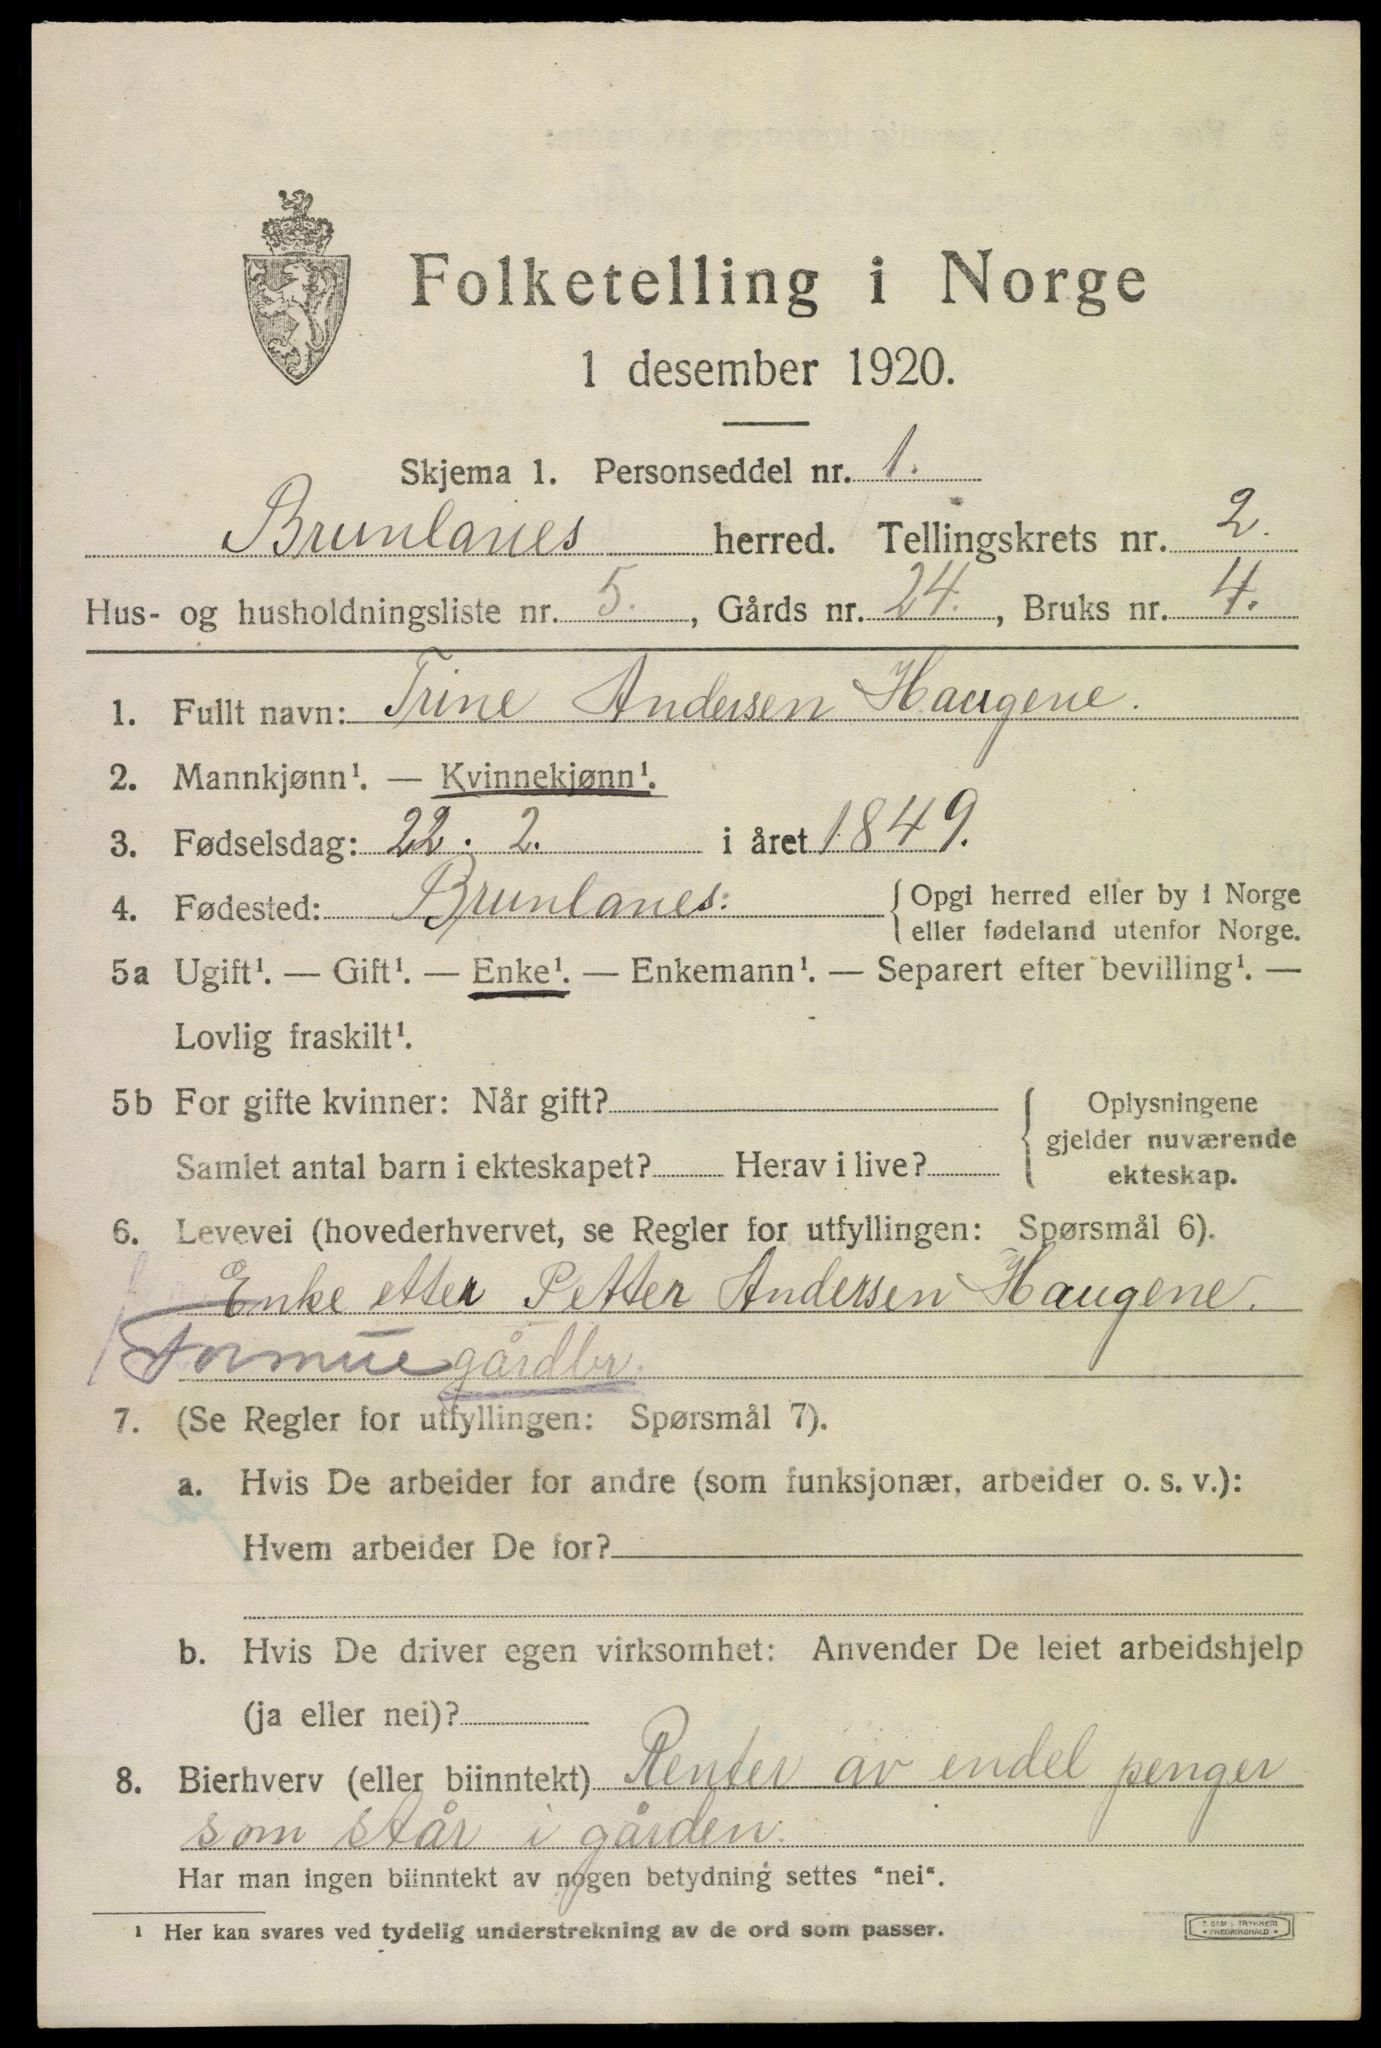 Folketelling i Norge
1 desember 1920.
Skjema 1. Personseddel nr. 1.
Brunlanes herred. Tellingskrets nr. 2.
Hus- og husholdningsliste nr. 5., Gårds nr. 24., Bruks nr. 4.
1. Fullt navn: Trine Andersen Haugene.
2. Mannkjønn¹. — Kvinnekjønn¹.
3. Fødselsdag: 22. 2. i året 1849.
4. Fødested: Brunlanes: { Opgi herred eller by i Norge
eller fødeland utenfor Norge.
5a Ugift¹. — Gift¹. — Enke¹. — Enkemann¹. — Separert efter bevilling¹. —
Lovlig fraskilt¹.
5b For gifte kvinner: Når gift? { Oplysningene
gjelder nuværende
Samlet antal barn i ekteskapet? Herav i live? ekteskap.
6. Levevei (hovederhvervet, se Regler for utfyllingen: Spørsmål 6).
Enke etter Petter Andersen Haugene.
Formue gårdbr.
7. (Se Regler for utfyllingen: Spørsmål 7).
a. Hvis De arbeider for andre (som funksjonær, arbeider o. s. v.):
Hvem arbeider De for?
b. Hvis De driver egen virksomhet: Anvender De leiet arbeidshjelp
(ja eller nei)?
8. Bierhverv (eller biinntekt) Renter av endel penger
som står i gården.
Har man ingen biinntekt av nogen betydning settes "nei".
¹ Her kan svares ved tydelig understrekning av de ord som passer.